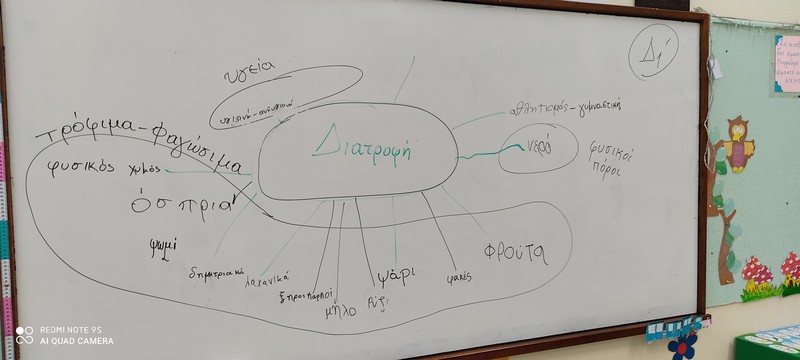 Δ1
υγεία
υγιεινή-
αθλητισμός-γυμναστική
τρόφιμα-φαγώσιμα
Διατροφή
νερό
φυσικοί
πόροι
φυσικός χυμός
όσπρια
ψωμί
δημητριακά
λαχανικά
ξηροί καρποί
μήλο
ρύζι
ψάρι
φακές
φρούτα
REDMI NOTE 9S
AI QUAD CAMERA